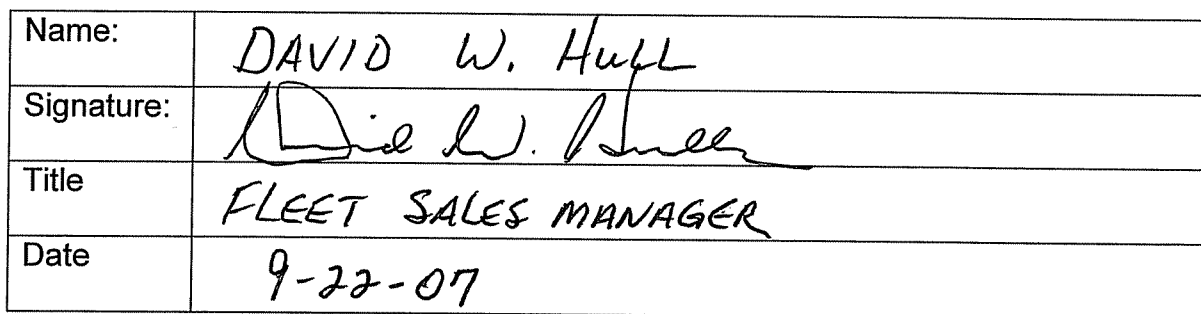 Name: DAVID W. HULL
Signature: David W. Hull
Title FLEET SALES MANAGER
Date 9-22-07